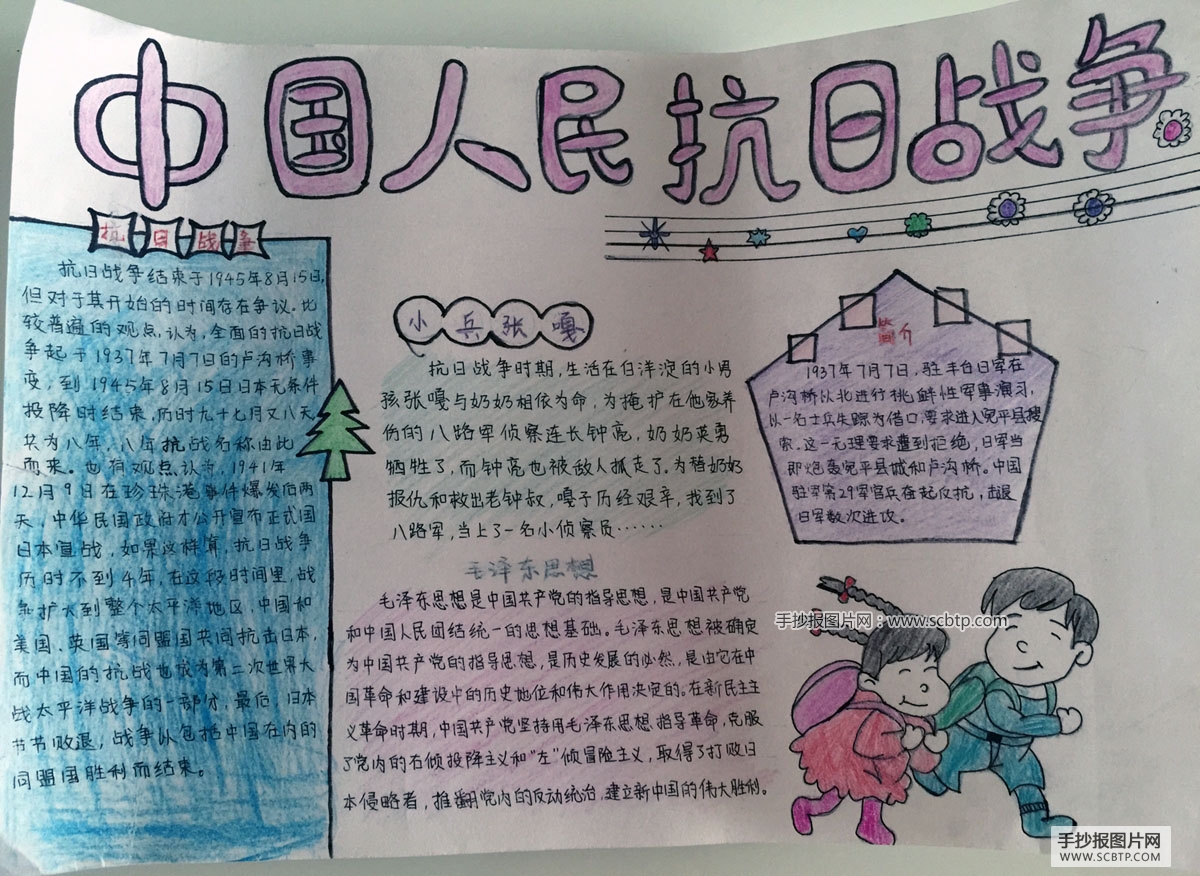 中国人民抗日战争
抗日战争
抗日战争结束于1945年8月15日,
但对于其开始的时间存在争议。比
较普遍的观点,认为,全面的抗日战
争起于1937年7月7日的卢沟桥事
变,到1945年8月15日日本无条件
投降时结束,历时九十七月又八天,
共为八年,八年抗战名称由此
而来。也有观点认为,1941年
12月9日在珍珠港事件爆发后两
天,中华民国政府才公开宣布正式国
日本宣战,如果这样算,抗日战争
历时不到4年,在这段时间里,战
争扩大到整个太平洋地区,中国和
美国、英国等同盟国共同抗击日本,
而中国的抗战也成为第二次世界大
战太平洋战争的一部分,最后,日本
节节败退,战争以包括中国在内的
同盟国胜利而结束。
小兵张嘎
抗日战争时期,生活在白洋淀的小男
孩张嘎与奶奶相依为命,为掩护在他家养
伤的八路军侦察连长钟亮,奶奶英勇
牺牲了,而钟亮也被敌人抓走了。为替奶奶
报仇和救出老钟叔,嘎子历经艰辛,找到了
八路军,当上了一名小侦察员……
毛泽东思想
毛泽东思想是中国共产党的指导思想,是中国共产党
和中国人民团结统一的思想基础。毛泽东思想被确定
为中国共产党的指导思想,是历史发展的必然,是由它在中
国革命和建设中的历史地位和伟大作用决定的。在新民主主
义革命时期,中国共产党坚持用毛泽东思想指导革命,克服
了党内的右倾投降主义和"左"倾冒险主义,取得了打败日
本侵略者,推翻党内的反动统治,建立新中国的伟大胜利。
简介
1937年7月7日,驻丰台日军在
卢沟桥以北进行挑衅性军事演习,
以一名士兵失踪为借口,要求进入宛平县搜
索。这一无理要求遭到拒绝,日军当
即炮轰宛平县城和卢沟桥。中国
驻军第29军官兵奋起反抗,击退
日军数次进攻。
手抄报图片网:www.scbtp.com
手抄报图片网
WWW.SCBTP.COM